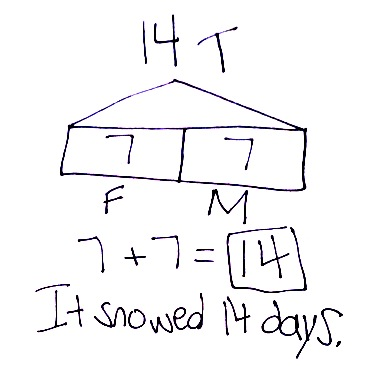 14 T
7 7
F M
7 + 7 = 14
It snowed 14 days.